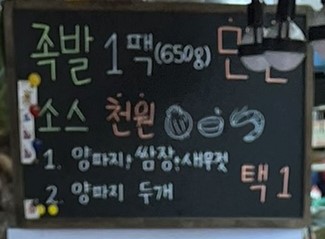 족발 1팩(650g) 만원
소스 천원
1. 양파지, 쌈장, 새우젓
2. 양파지 두개
택1